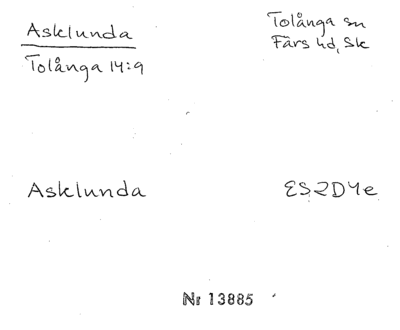 Asklunda
Tolånga sn
Färs hd, Sk
Tolånga 14:9
Asklunda
ES2D4e
Nr 13885